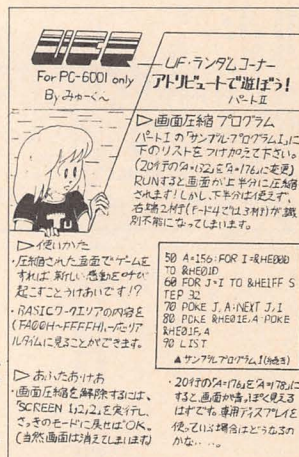 UFR
For PC-6001 only
By みゅ〜くん
UF・ランダムコーナー
アトリビュートで遊ぼう!
パートII
▷画面圧縮プログラム
パートIの「サンプルプログラムI」に
下のリストをつけ加えて下さい。
(20行の"A=132"を"A=176"に変更)
RUNすると、画面が上半分に圧縮
されます!しかし、下半分は使えず、
右端2ケタ(モード4では3ケタ)が識
別不能になってしまいます。
T U
▷使いかた
・圧縮された画面でゲームを
すれば新しい感動をサび
起こすことうけあいです!?
・BASICワークエリアの内容を
(FA00H〜FFFFH)一べつリア
ルタイムに見ることができます。
▷あふたあけあ
・画面圧縮を解除するには、
"SCREEN 1,2,2,"を実行し、
さっきのモードに戻せばOK。
(当然画面は消えてしまいます)
50 A=156:FOR I=&HE000
TO &HE01D
60 FOR J=I TO &HE1FF S
TEP 32
70 POKE J,A:NEXT J,I
80 POKE &HE01E,A:POKE
&HE01F,A
90 LIST
▲サンプルプログラムI(続き)
・20行の"A=176"を"A=178"に
すると、画面が青っぽく見える
はずです。専用ディスプレイを
使っている場合はどうなるの
かな・・・。